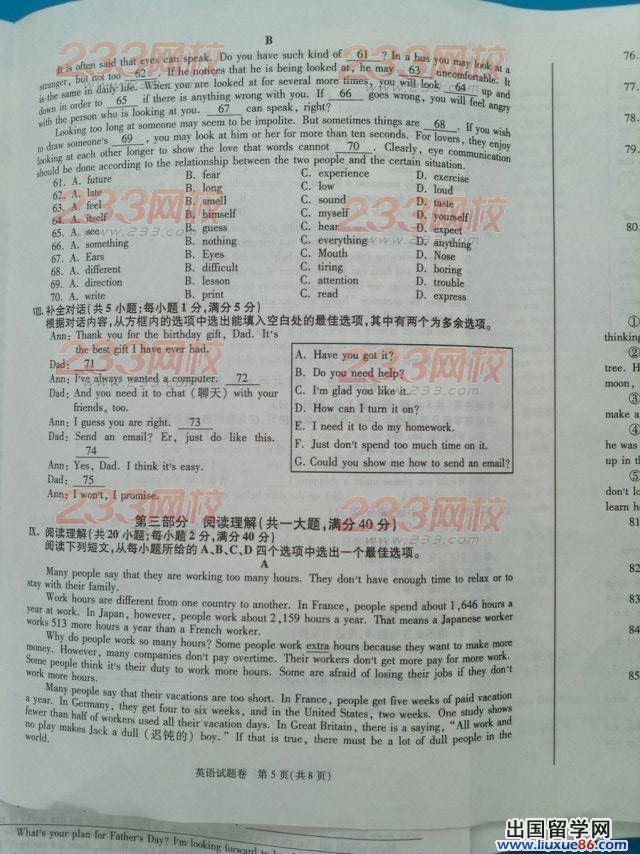 B
It is often said that eyes can speak. Do you have such kind of 61 ? In a bus you may look at a
stranger, but not too 62 . If he notices that he is being looked at, he may 63 uncomfortable. It
is the same in daily life. When you are looked at for several more times, you will look 64 up and
down in order to 65 if there is anything wrong with you. If 66 goes wrong, you will feel angry
with the person who is looking at you. 67 can speak, right?
Looking too long at someone may seem to be impolite. But sometimes things are 68 . If you wish
to draw someone's 69 , you may look at him or her for more than ten seconds. For lovers, they enjoy
looking at each other longer to show the love that words cannot 70 . Clearly, eye communication
should be done according to the relationship between the two people and the certain situation.
61. A. future B. fear C. experience D. exercise
62. A. late B. long C. low D. loud
63. A. feel B. smell C. sound D. taste
64. A. itself B. himself C. myself D. yourself
65. A. see B. guess C. hear D. expect
66. A. something B. nothing C. everything D. anything
67. A. Ears B. Eyes C. Mouth D. Nose
68. A. different B. difficult C. tiring D. boring
69. A. direction B. lesson C. attention D. trouble
70. A. write B. print C. read D. express
Ⅷ. 补全对话(共5小题;每小题1分,满分5分)
根据对话内容,从方框内的选项中选出能填入空白处的最佳选项,其中有两个为多余选项。
Ann: Thank you for the birthday gift, Dad. It's
the best gift I have ever had.
Dad: 71
Ann: I've always wanted a computer. 72
Dad: And you need it to chat (聊天) with your
friends, too.
Ann: I guess you are right. 73
Dad: Send an email? Er, just do like this.
74
Ann: Yes, Dad. I think it's easy.
Dad: 75
Ann: I won't, I promise.
A. Have you got it?
B. Do you need help?
C. I'm glad you like it.
D. How can I turn it on?
E. I need it to do my homework.
F. Just don't spend too much time on it.
G. Could you show me how to send an email?
第三部分 阅读理解(共一大题,满分40分)
Ⅸ. 阅读理解(共20小题;每小题2分,满分40分)
阅读下列短文,从每小题所给的A、B、C、D四个选项中选出一个最佳选项。
A
Many people say that they are working too many hours. They don't have enough time to relax or to
stay with their family.
Work hours are different from one country to another. In France, people spend about 1,646 hours a
year at work. In Japan, however, people work about 2,159 hours a year. That means a Japanese worker
works 513 more hours a year than a French worker.
Why do people work so many hours? Some people work extra hours because they want to make more
money. However, many companies don't pay overtime. Their workers don't get more pay for more work.
Some people think it's their duty to work more hours. Some are afraid of losing their jobs if they don't
work more hours.
Many people say that their vacations are too short. In France, people get five weeks of paid vacation
a year. In Germany, they get four to six weeks, and in the United States, two weeks. One study shows
fewer than half of workers used all their vacation days. In Great Britain, there is a saying, "All work and
no play makes Jack a dull (迟钝的) boy." If that is true, there must be a lot of dull people in the
world.
英语试题卷 第5页(共8页)
76.
77.
78.
79.
80.
①
thinking
tree. H
moon,
③
make a
④
he was
up in t
⑤
don't lo
learn h
81
82
83
84
85
What's your plan for Father's Day? I'm looking forward to
233网校
www.233.com
出国留学网
www.liuxue86.com